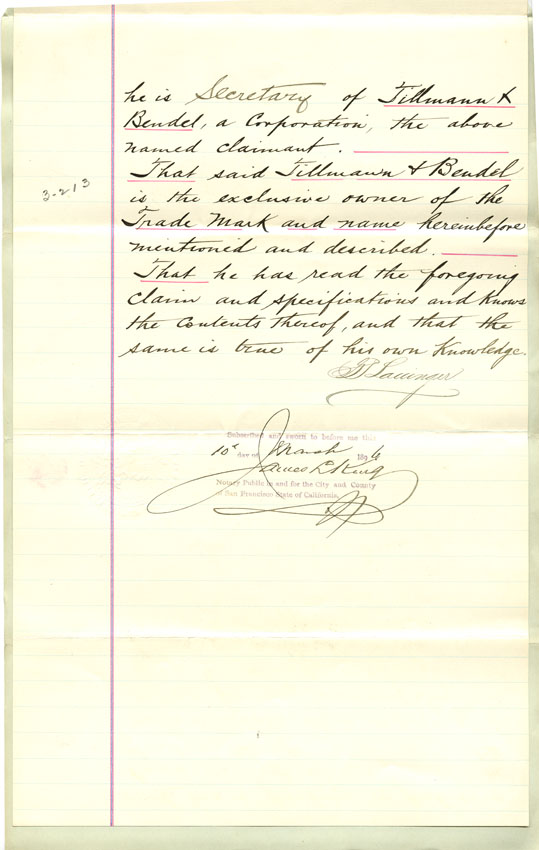 he is Secretary of Tillmann &
Bendel, a Corporation, the above
named claimant.
That said Tillmann & Bendel
is the exclusive owner of the
3-213
Trade Mark and name hereinbefore
mentioned and described.
That he has read the foregoing
Claim and specifications and knows
the Contents thereof, and that the
same is true of his own Knowledge.
Subscribed and sworn to before me this
10th day of March 189
James L King
Notary Public in and for the City and County
of San Francisco State of California.